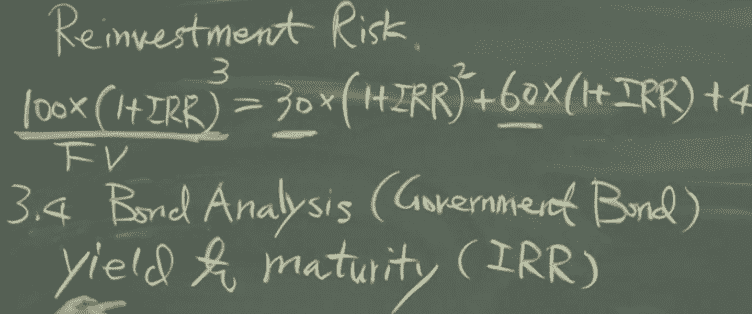 Reinvestment Risk.
100×(1+IRR)³ = 30×(1+IRR)²+60×(1+IRR)+4
FV
3.4 Bond Analysis (Government Bond)
yield to maturity (IRR)